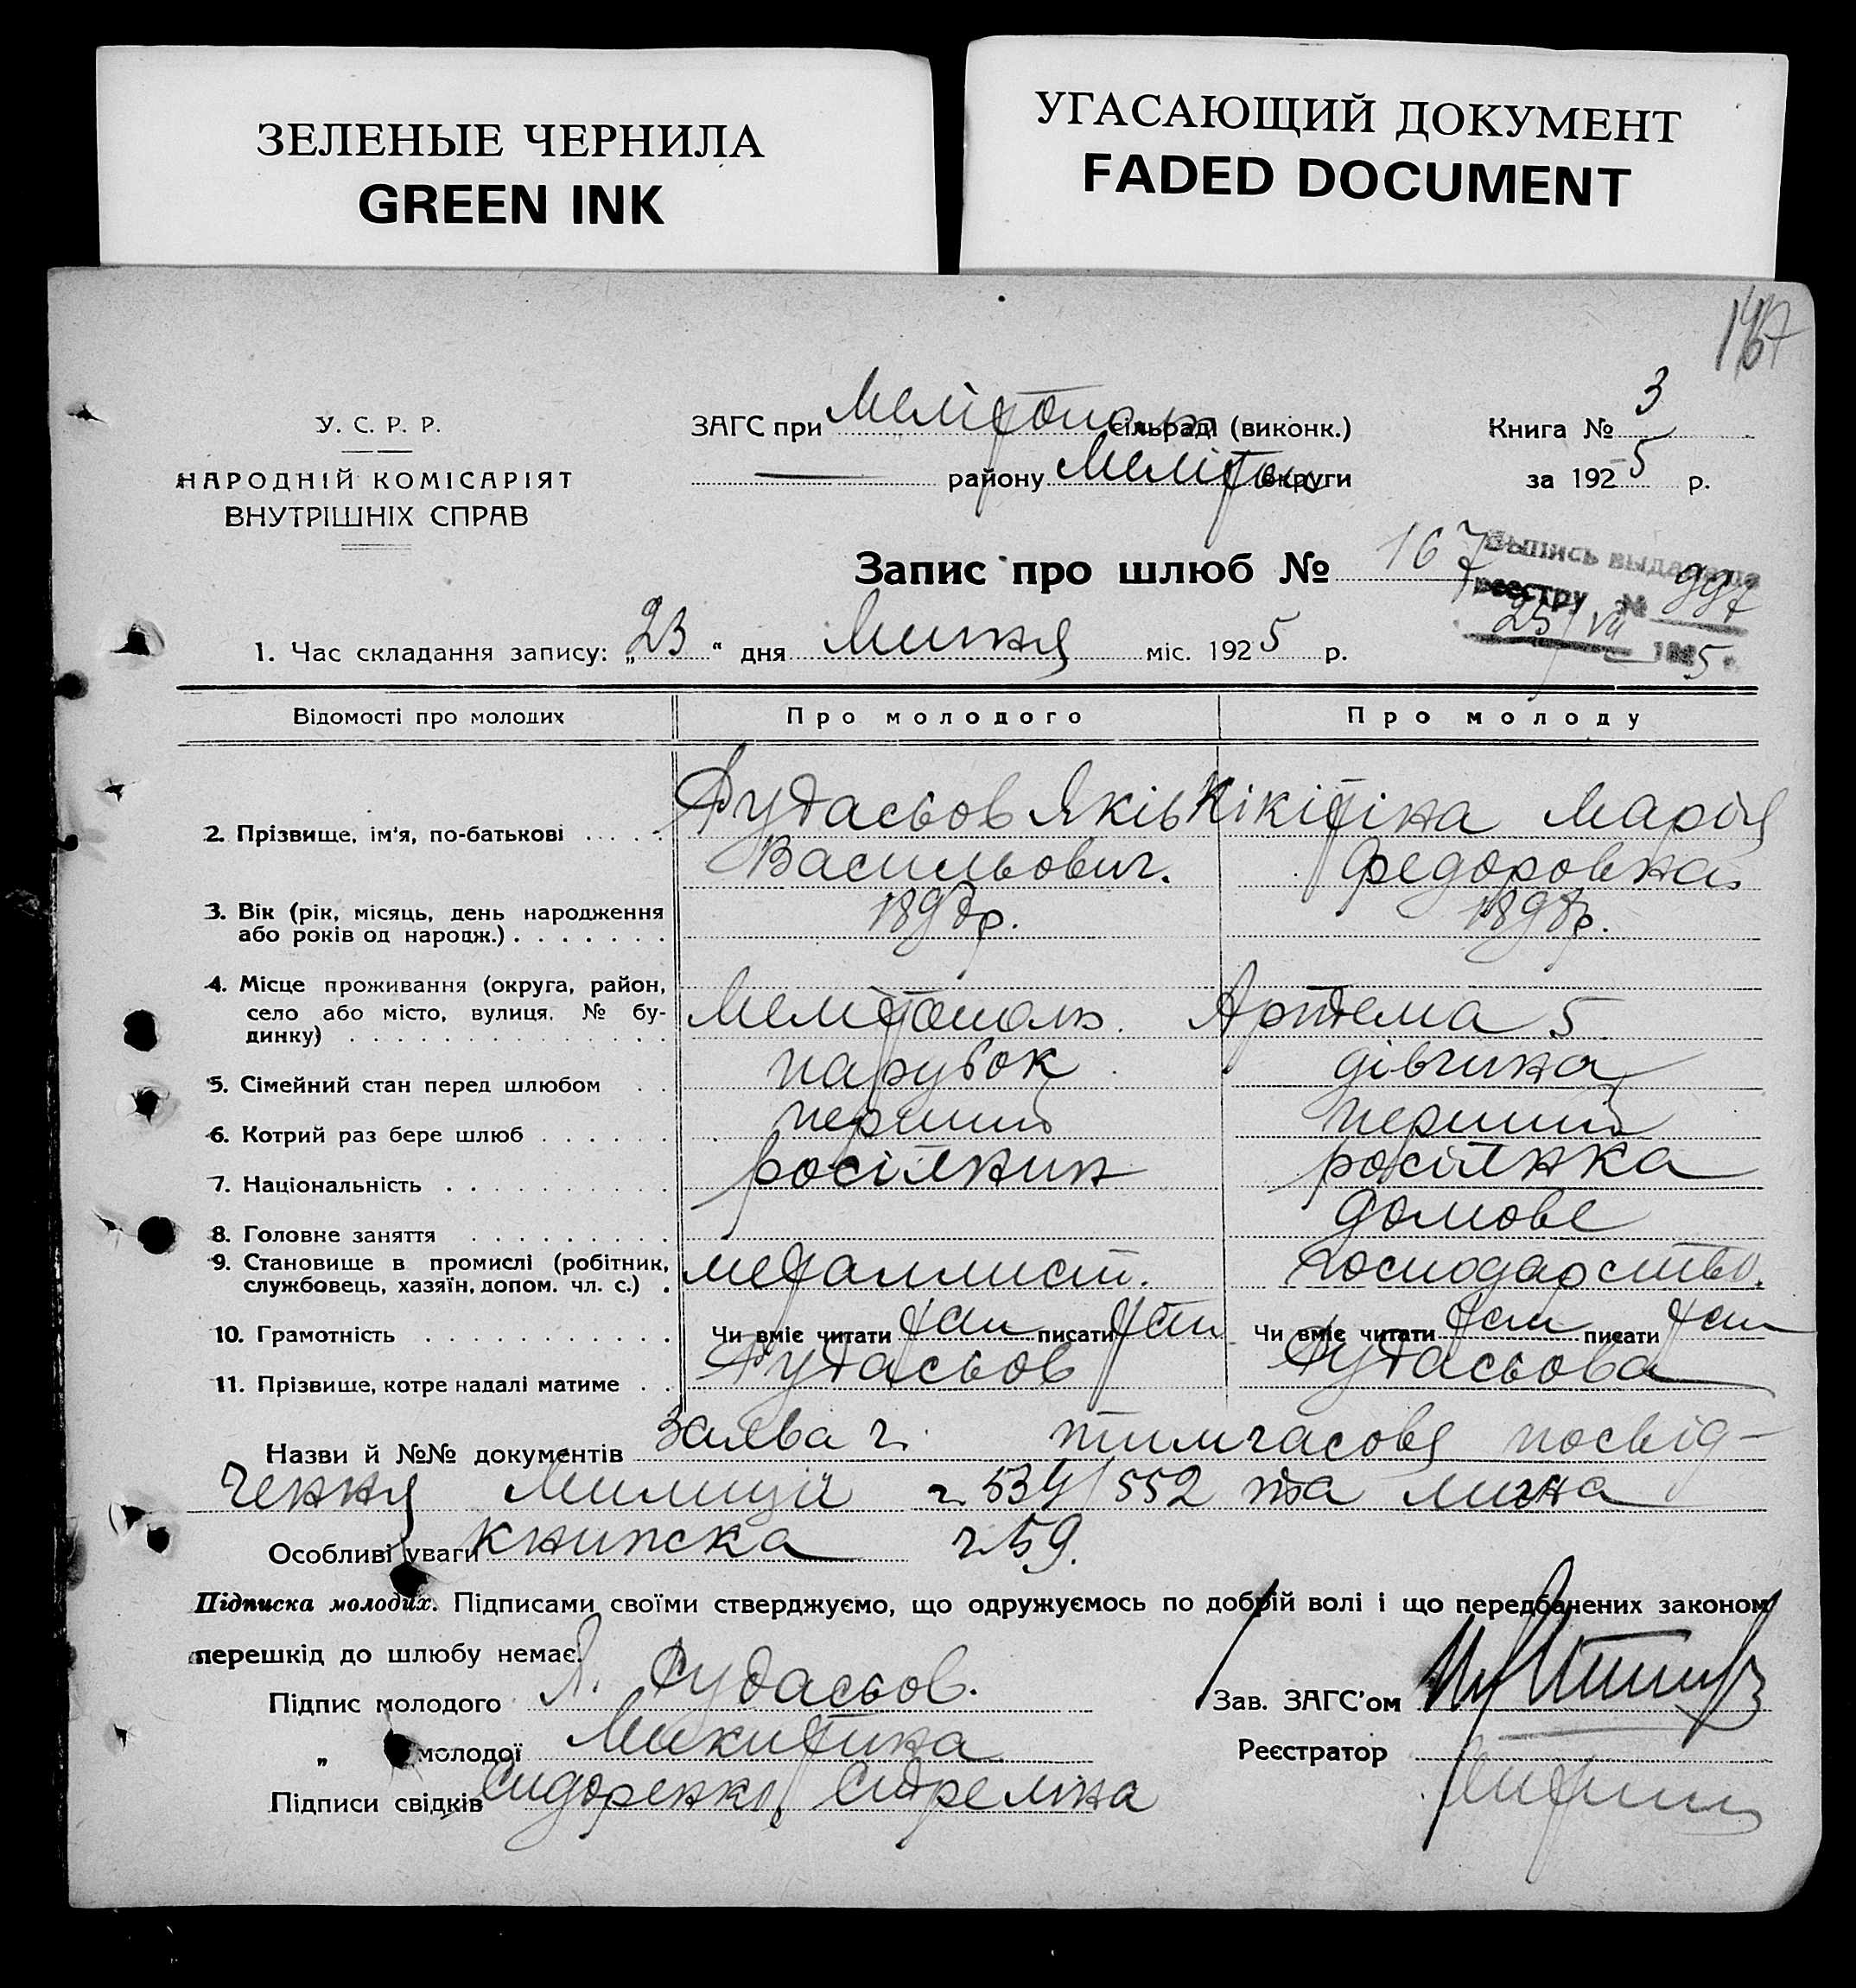 ЗЕЛЕНЫЕ ЧЕРНИЛА
GREEN INK
УГАСАЮЩИЙ ДОКУМЕНТ
FADED DOCUMENT
У. С. Р. Р.
НАРОДНІЙ КОМІСАРІЯТ
ВНУТРІШНІХ СПРАВ
ЗАГС при Мелітополь сільраді (виконк.)
району Меліто округи
Книга № 3
за 1925 р.
Запис про шлюб № 167
Выпись выдана
реестру № 997
25/VII 1925 г.
1. Час складання запису: „23“ дня Липня міс. 1925 р.
Відомості про молодих Про молодого Про молоду
2. Прізвище, ім'я, по-батькові Яків Нікітіна Марія
Васильович. Федоровна
3. Вік (рік, місяць, день народження
або років од народж.) 1898р.
4. Місце проживання (округа, район,
село або місто, вулиця, № бу-
динку) Мелітополь. Артема 5
5. Сімейний стан перед шлюбом парубок дівчина
6. Котрий раз бере шлюб перший перший
7. Національність росіянин росіянка
8. Головне заняття домове
9. Становище в промислі (робітник,
службовець, хазяїн, допом. чл. с.) металлист. господарство.
10. Грамотність Чи вміє читати так писати так Чи вміє читати так писати так
11. Прізвище, котре надалі матиме
Назви й №№ документів Заява ч. тимчасове посвід-
чення Милиції ч. 534/552 та лична
Особливі уваги книжка ч. 59.
Підписка молодих. Підписами своїми стверджуємо, що одружуємось по добрій волі і що передбачених законом
перешкід до шлюбу немає.
Підпис молодого Я.
„ молодої Микитина
Підписи свідків Сидоренко,
Зав. ЗАГС'ом
Реєстратор